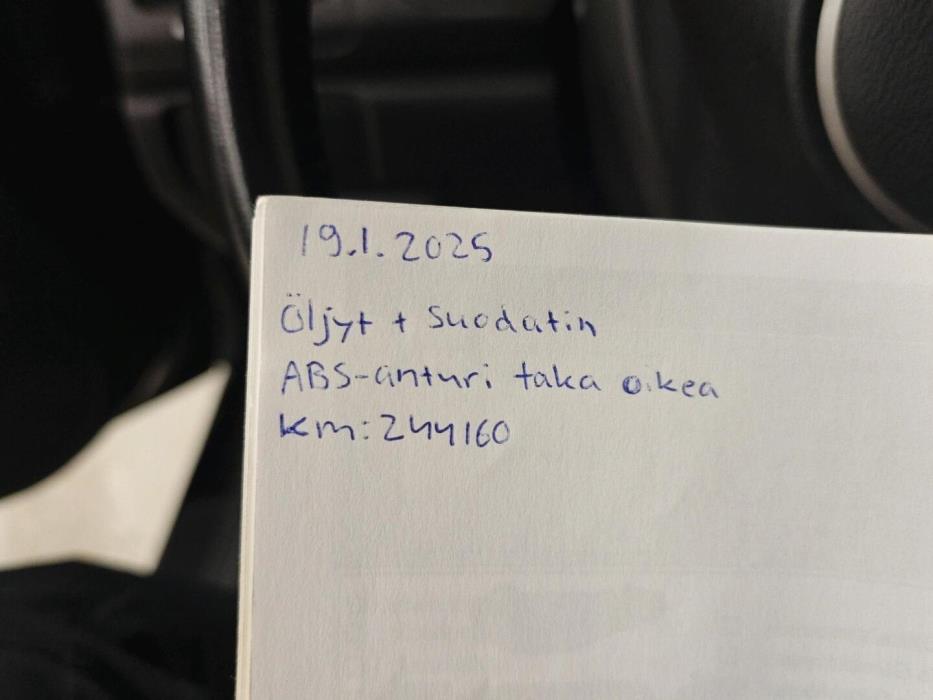 19.1.2025
Öljyt + Suodatin
ABS-anturi taka oikea
km: 244160